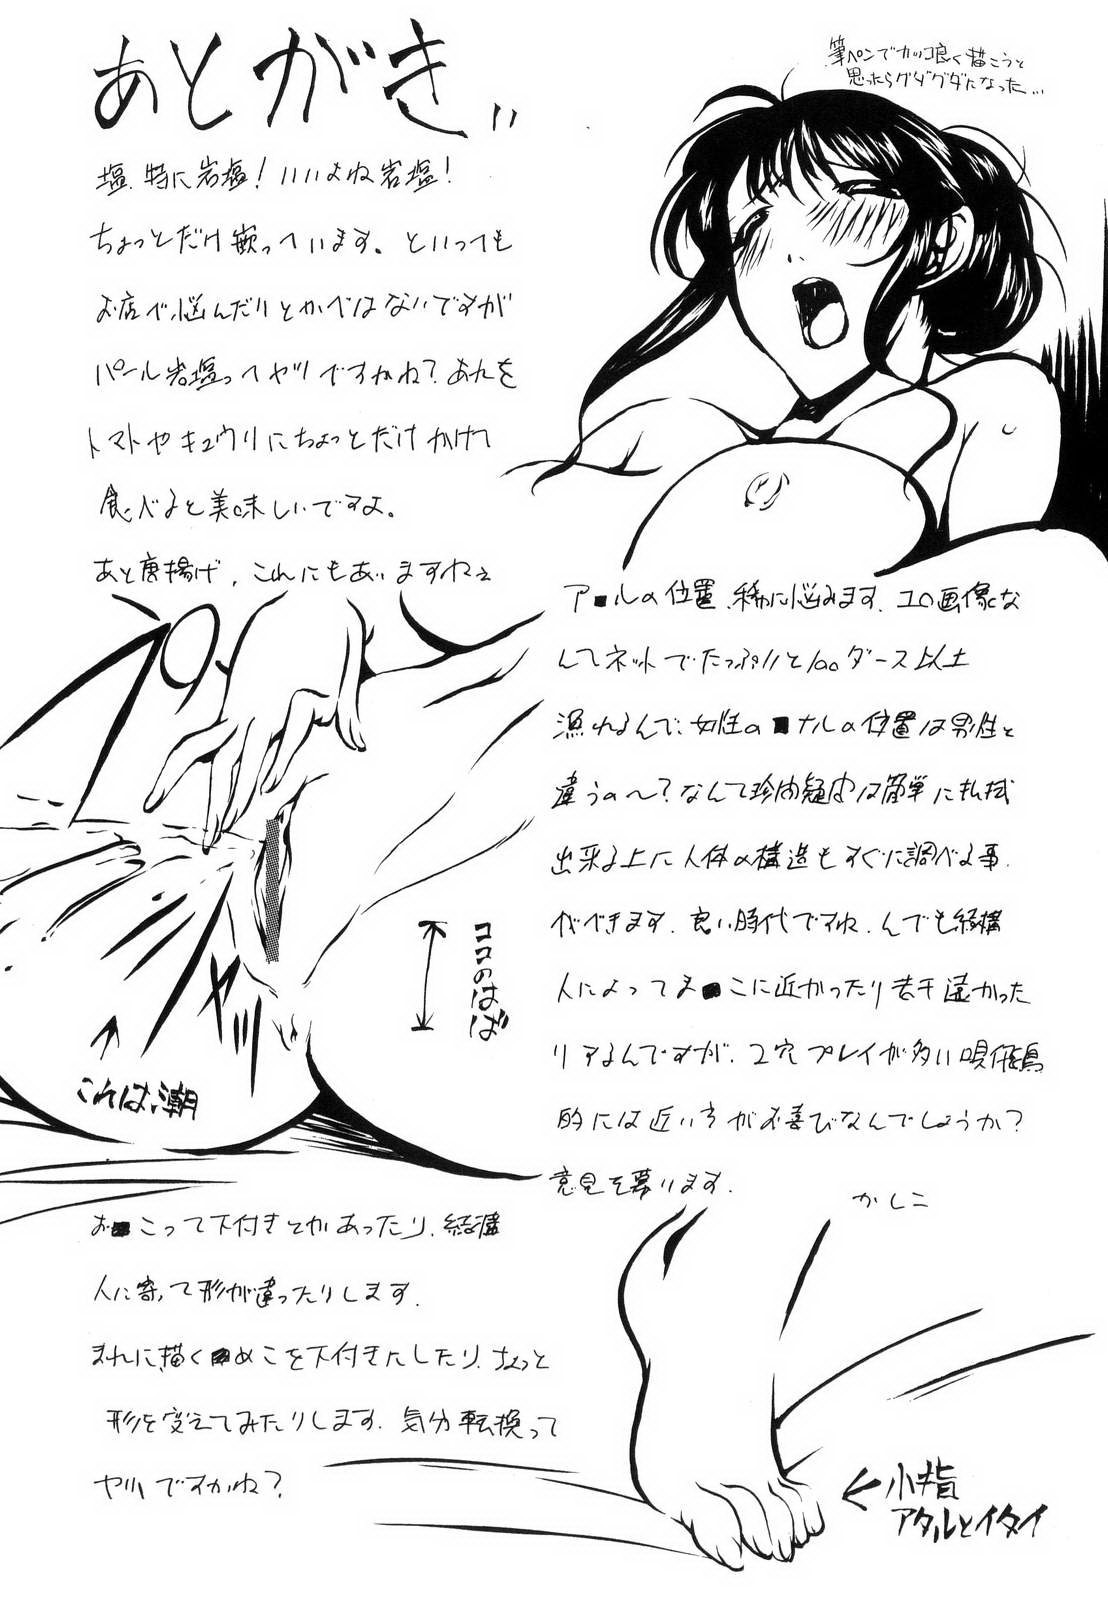 あとがき
筆ペンでカッコ良く描こうと
思ったらグダグダになった…
塩、特に岩塩！いいよね岩塩！
ちょっとだけ嵌っています。といっても
お店で悩んだりとかではないですが
パール岩塩ってヤツですかね？あれを
トマトやキュウリにちょっとだけかけて
食べると美味しいですよ。
あと唐揚げ、これにもあいますねぇ
ア■ルの位置、稀に悩みます、エロ画像な
んてネットでたっぷりと100ダース以上
漁れるんで、女性の■ナルの位置は男性と
違うの〜？なんて珍肉疑肉は簡単に払拭
出来る上に人体の構造もすぐに調べる事
ができます、良い時代ですね、んでも結構
人によってま■こに近かったり若干遠かった
リするんですが、2穴プレイが多い唄飛鳥
的には近い方がお喜びなんでしょうか？
意見を募ります。
かしこ
ココのはば
これは潮
お■こって下付きとかあったり、結構
人に寄って形が違ったりします。
まれに描く■めこを下付きにしたり、ちょっと
形を変えてみたりします、気分転換って
ヤツですかね？
小指
アタルとイタイ